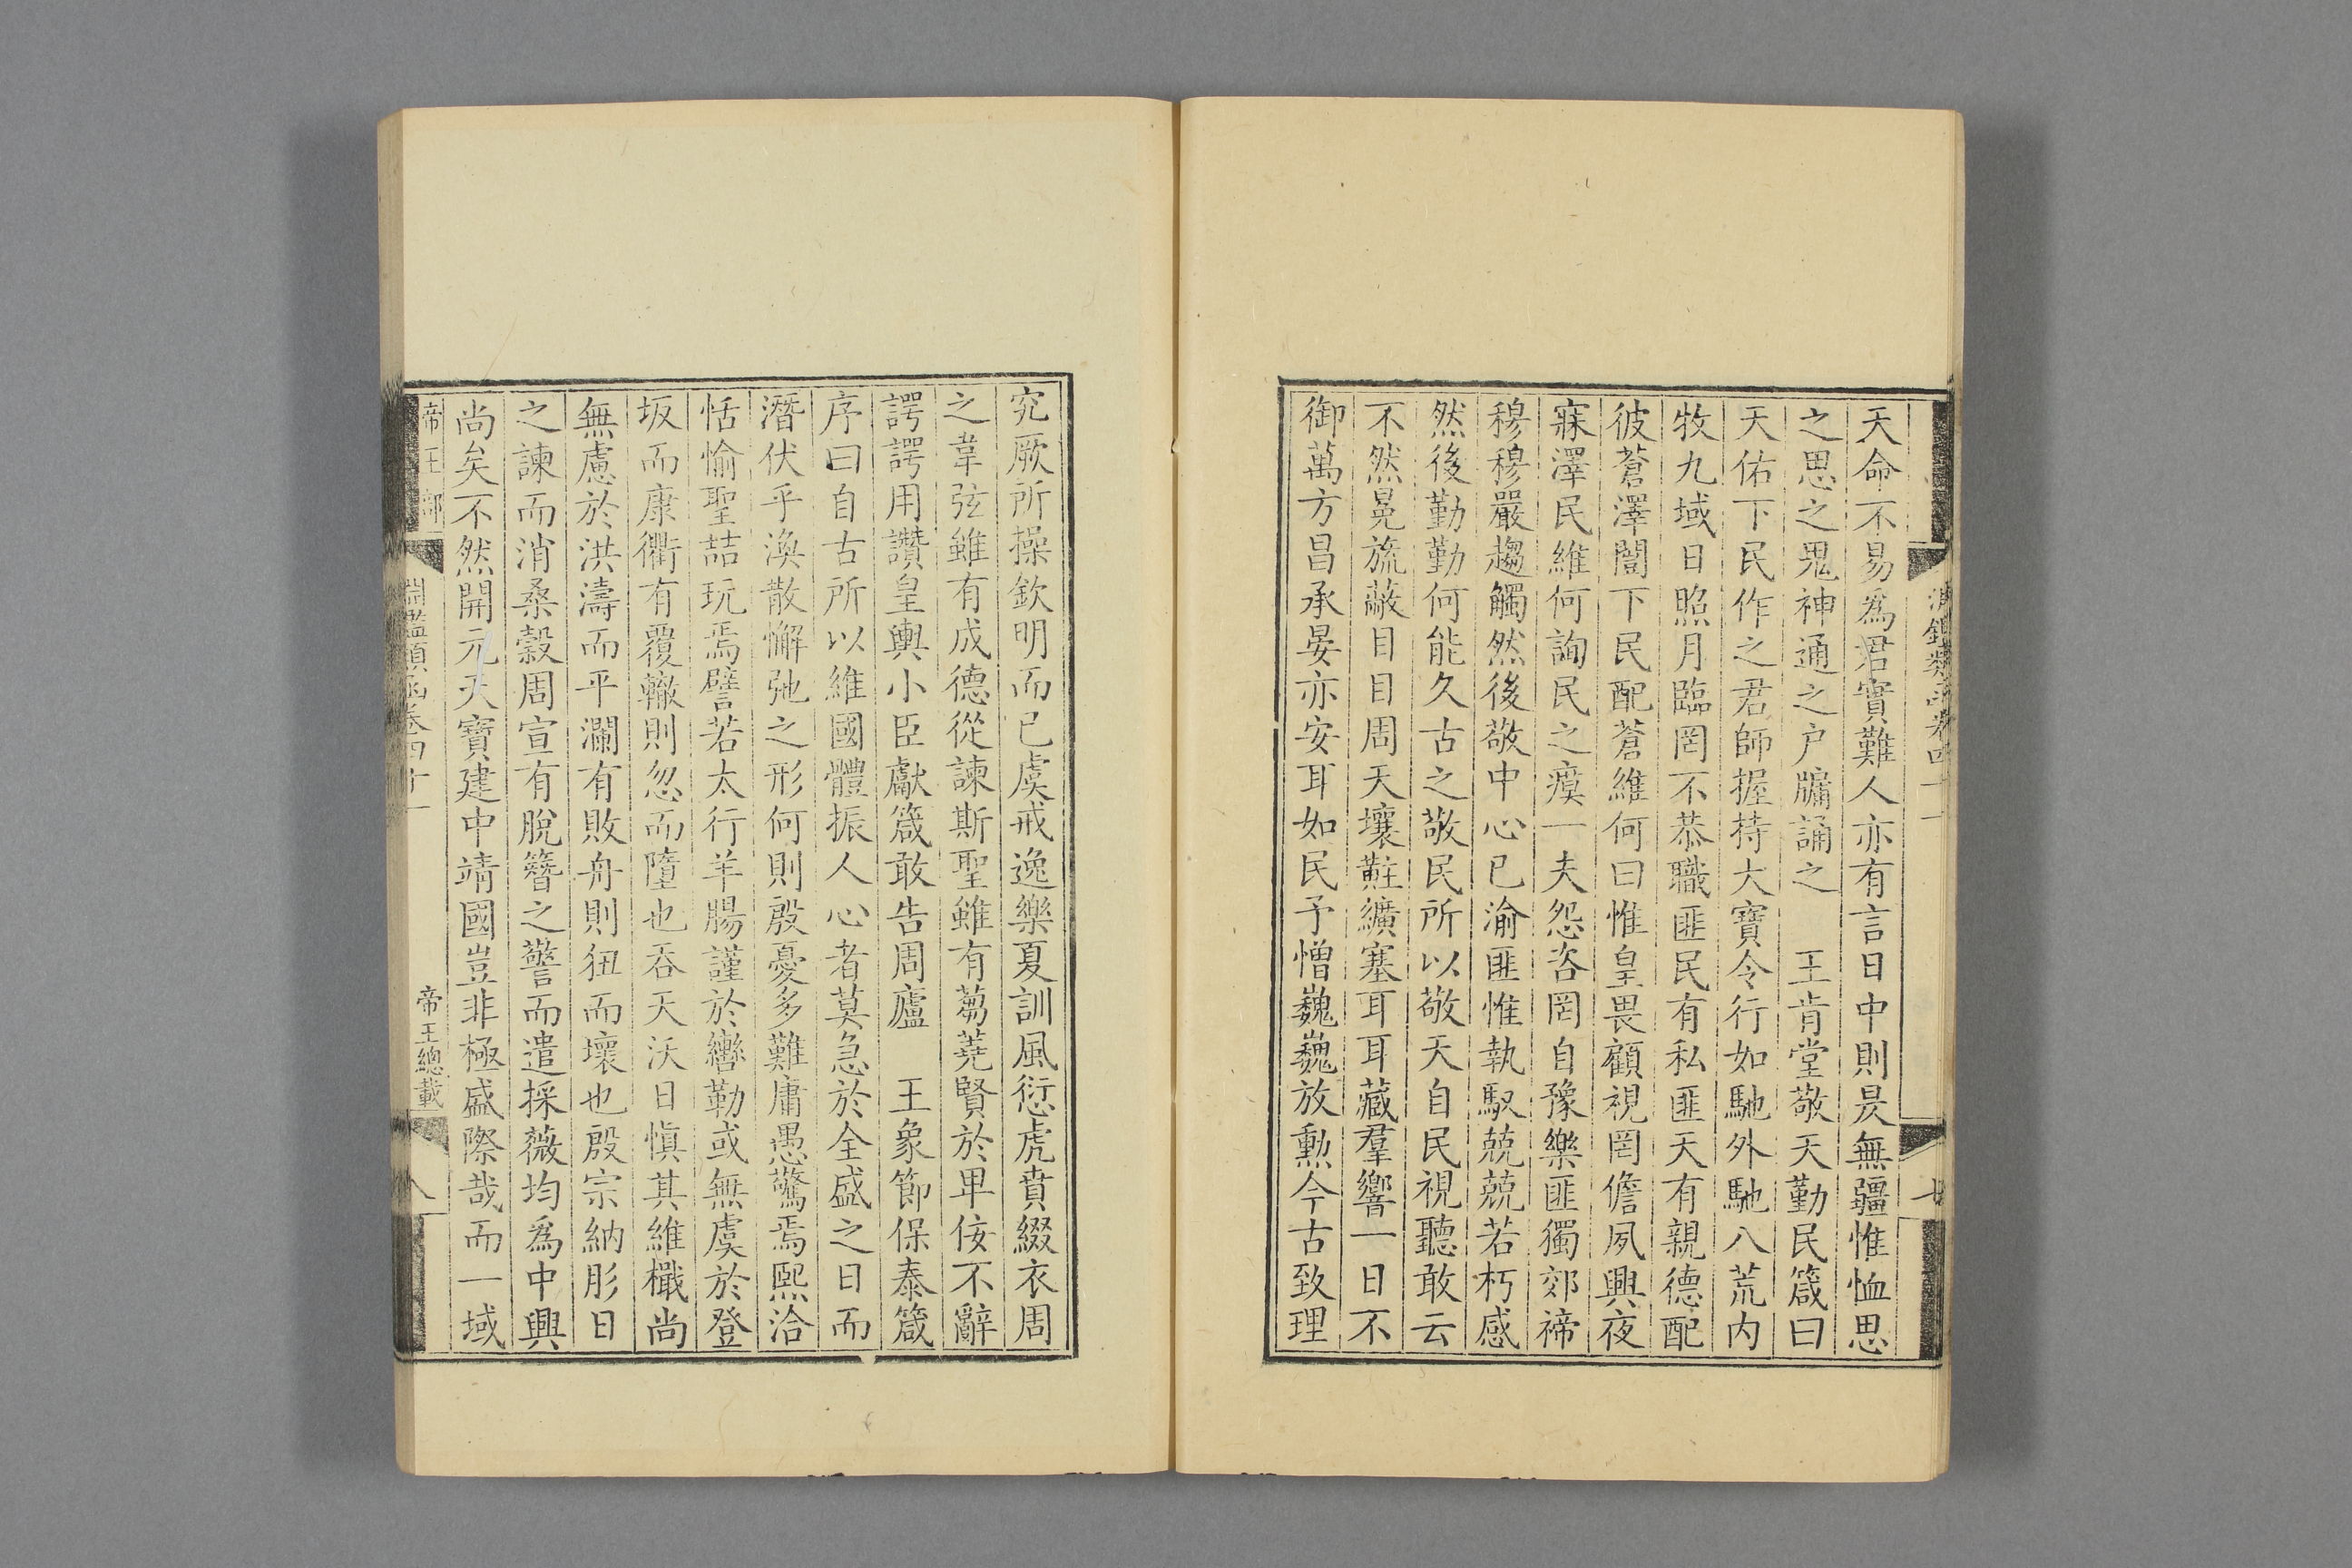 天命不易為君實難人亦有言日中則昃無疆惟恤思
之思之鬼神通之户牖誦之　王肯堂敬天勤民箴曰
天佑下民作之君師握持大寶令行如馳外馳八荒内
牧九域日照月臨罔不恭職匪民有私匪天有親德配
彼蒼澤闓下民配蒼維何曰惟皇畏顧視罔儋夙興夜
寐澤民維何詢民之瘼一夫怨咨罔自豫樂匪獨郊禘
穆穆嚴趨觸然後敬中心已渝匪惟執馭兢兢若朽感
然後勤勤何能久古之敬民所以敬天自民視聽敢云
不然冕旒蔽目目周天壤黈纊塞耳耳藏羣響一日不
御萬方昌承晏亦安耳如民予憎巍巍放勲今古致理
究厥所操欽明而已虞戒逸樂夏訓風愆虎賁綴衣周
之韋弦雖有成德從諫斯聖雖有芻蕘賢於卑佞不辭
諤諤用讚皇輿小臣獻箴敢告周廬　王象節保泰箴
序曰自古所以維國體振人心者莫急於全盛之日而
潛伏乎渙散懈弛之形何則殷憂多難庸愚驚焉熙洽
恬愉聖喆玩焉譬若太行羊腸謹於轡勒或無虞於登
坂而康衢有覆轍則忽而墮也吞天沃日慎其維檝尚
無慮於洪濤而平瀾有敗舟則狃而壞也殷宗納肜日
之諫而消桑穀周宣有脫簪之警而遣採薇均為中興
尚矣不然開元天寶建中靖國豈非極盛際哉而一域
帝王部
淵鑑類函卷四十一
帝王總載
八